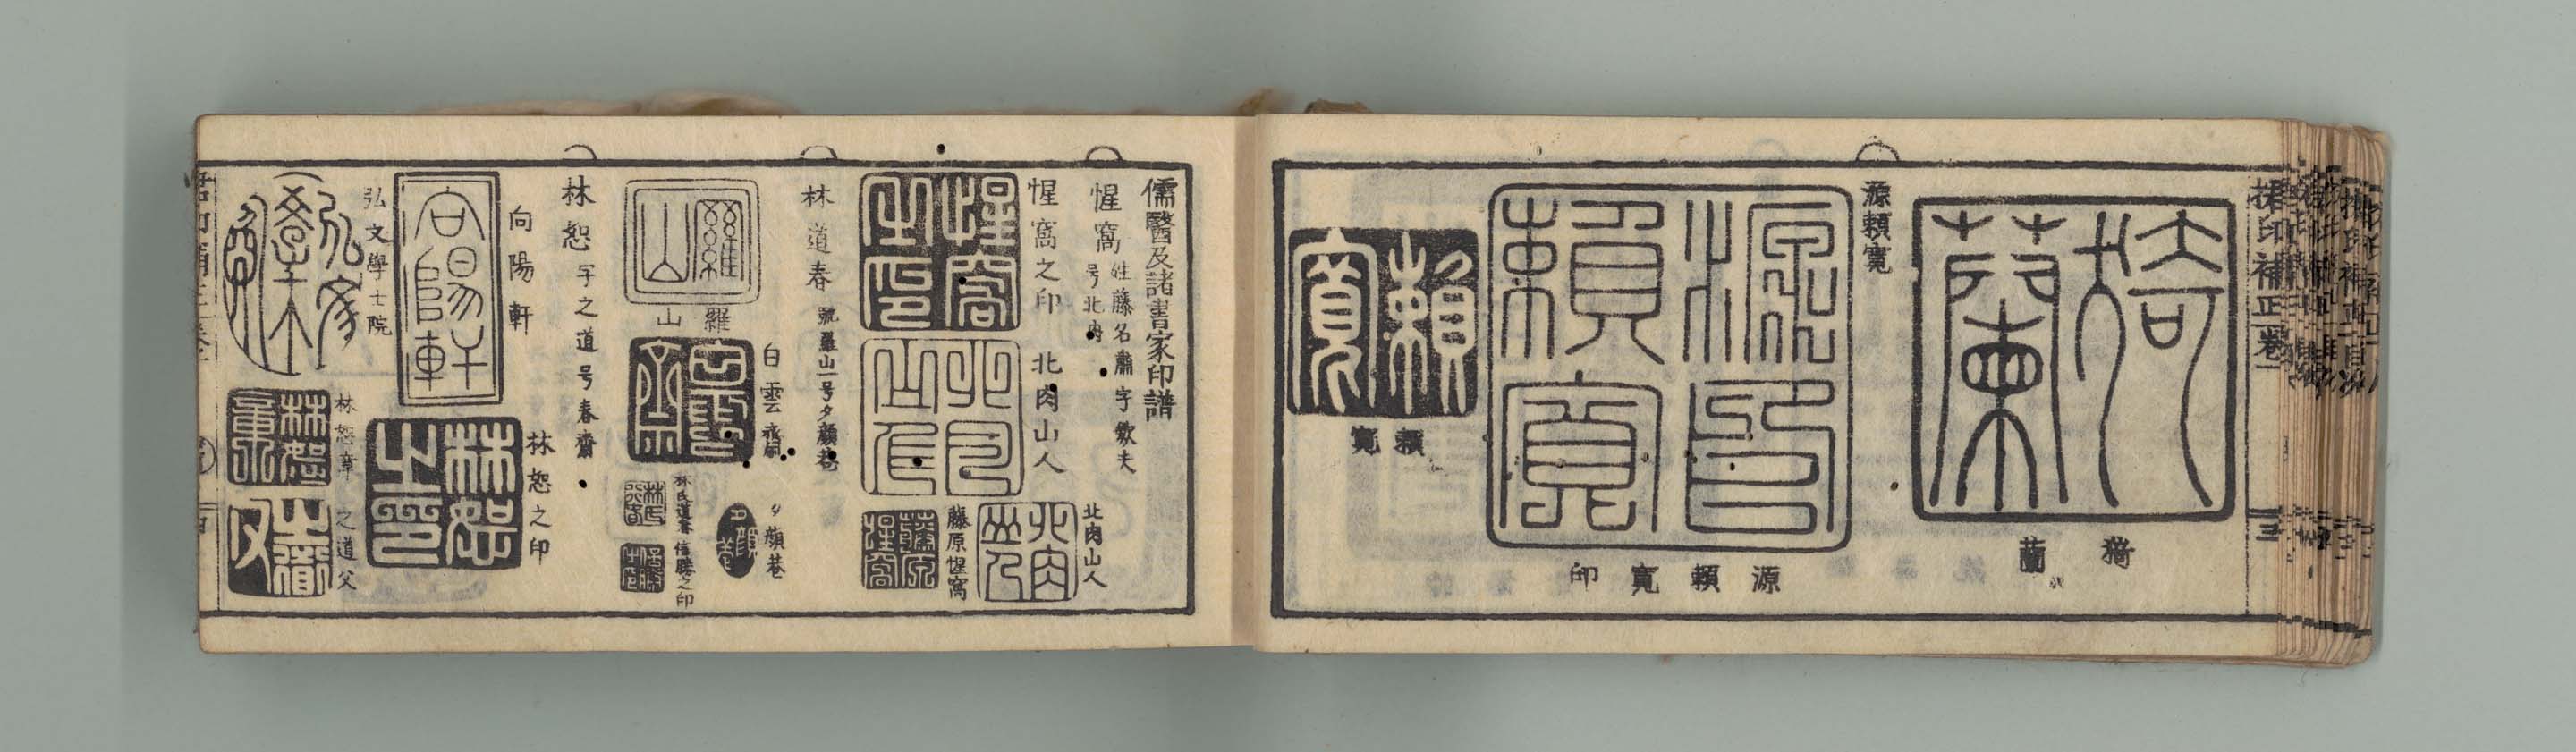 猗蘭
源頼寛
源頼寛印
頼寛
儒醫及諸書家印譜
惺窩 姓藤名肅字歛夫
号北肉
惺窩之印
北肉山人
北肉山人
藤原惺窩
林道春 號羅山一号夕顔巷
羅山
白雲
夕顔巷
林氏道春
信勝之印
林恕 字之道号春齋
向陽軒
林恕之印
弘文學士院
林恕章
之道父